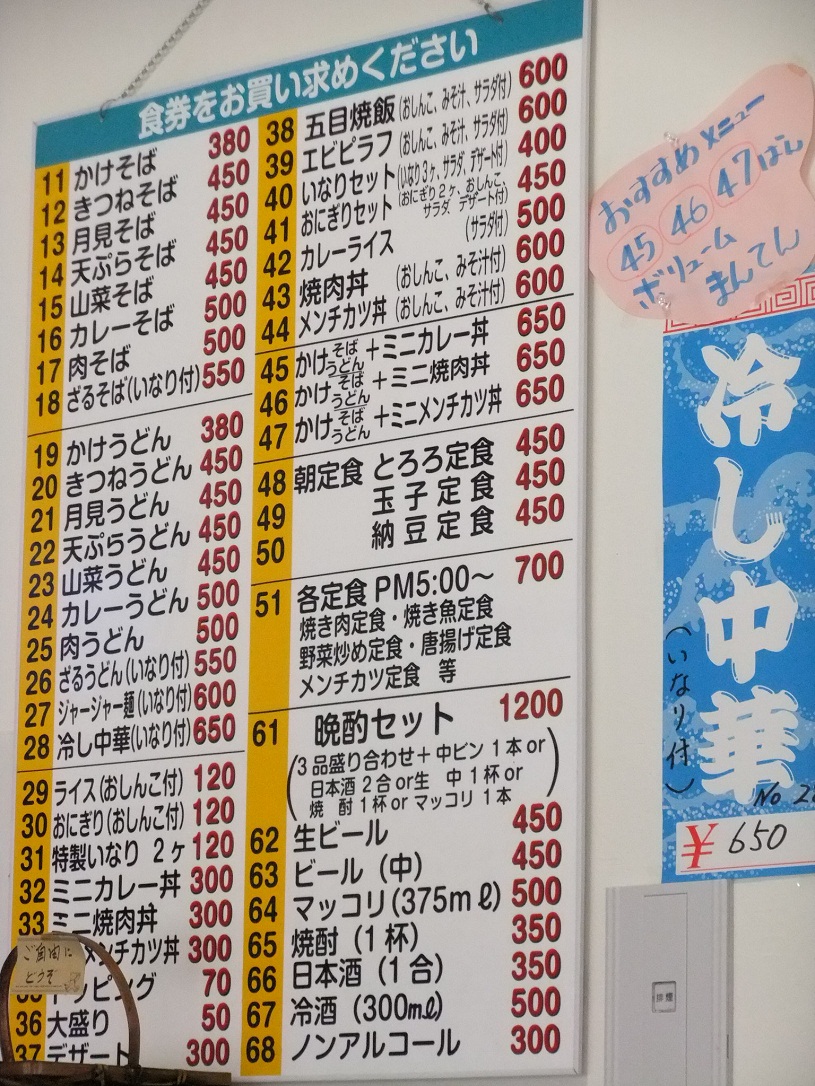 食券をお買い求めください
11 かけそば 380
12 きつねそば 450
13 月見そば 450
14 天ぷらそば 450
15 山菜そば 450
16 カレーそば 500
17 肉そば 500
18 ざるそば(いなり付) 550
19 かけうどん 380
20 きつねうどん 450
21 月見うどん 450
22 天ぷらうどん 450
23 山菜うどん 450
24 カレーうどん 500
25 肉うどん 500
26 ざるうどん(いなり付) 550
27 ジャージャー麺(いなり付) 600
28 冷し中華(いなり付) 650
29 ライス(おしんこ付) 120
30 おにぎり(おしんこ付) 120
31 特製いなり 2ヶ 120
32 ミニカレー丼 300
33 ミニ焼肉丼 300
メンチカツ丼 300
ッピング 70
36 大盛り 50
37 デザート 300
38 五目焼飯(おしんこ、みそ汁、サラダ付) 600
39 エビピラフ(おしんこ、みそ汁、サラダ付) 600
40 いなりセット(いなり3ヶ、サラダ、デザート付) 400
41 おにぎりセット(おにぎり2ヶ、おしんこ、サラダ デザート付) 450
42 カレーライス (サラダ付) 500
43 焼肉丼 (おしんこ、みそ汁付) 600
44 メンチカツ丼(おしんこ、みそ汁付) 600
45 かけそばうどん+ミニカレー丼 650
46 かけそばうどん+ミニ焼肉丼 650
47 かけそばうどん+ミニメンチカツ丼 650
48 朝定食 とろろ定食 450
49 玉子定食 450
50 納豆定食 450
51 各定食 PM5:00〜 700
焼き肉定食・焼き魚定食
野菜炒め定食・唐揚げ定食
メンチカツ定食 等
61 晩酌セット 1200
(3品盛り合わせ+中ビン1本or
日本酒2合or生 中1杯or
焼 酎1杯orマッコリ1本)
62 生ビール 450
63 ビール(中) 450
64 マッコリ(375mℓ) 500
65 焼酎(1杯) 350
66 日本酒(1合) 350
67 冷酒(300mℓ) 500
68 ノンアルコール 300
おすすめメニュー
45 46 47ばん
ボリューム
まんてん
冷し中華
(いなり付)
No 28
¥650
ご自由に
どうぞ
排煙